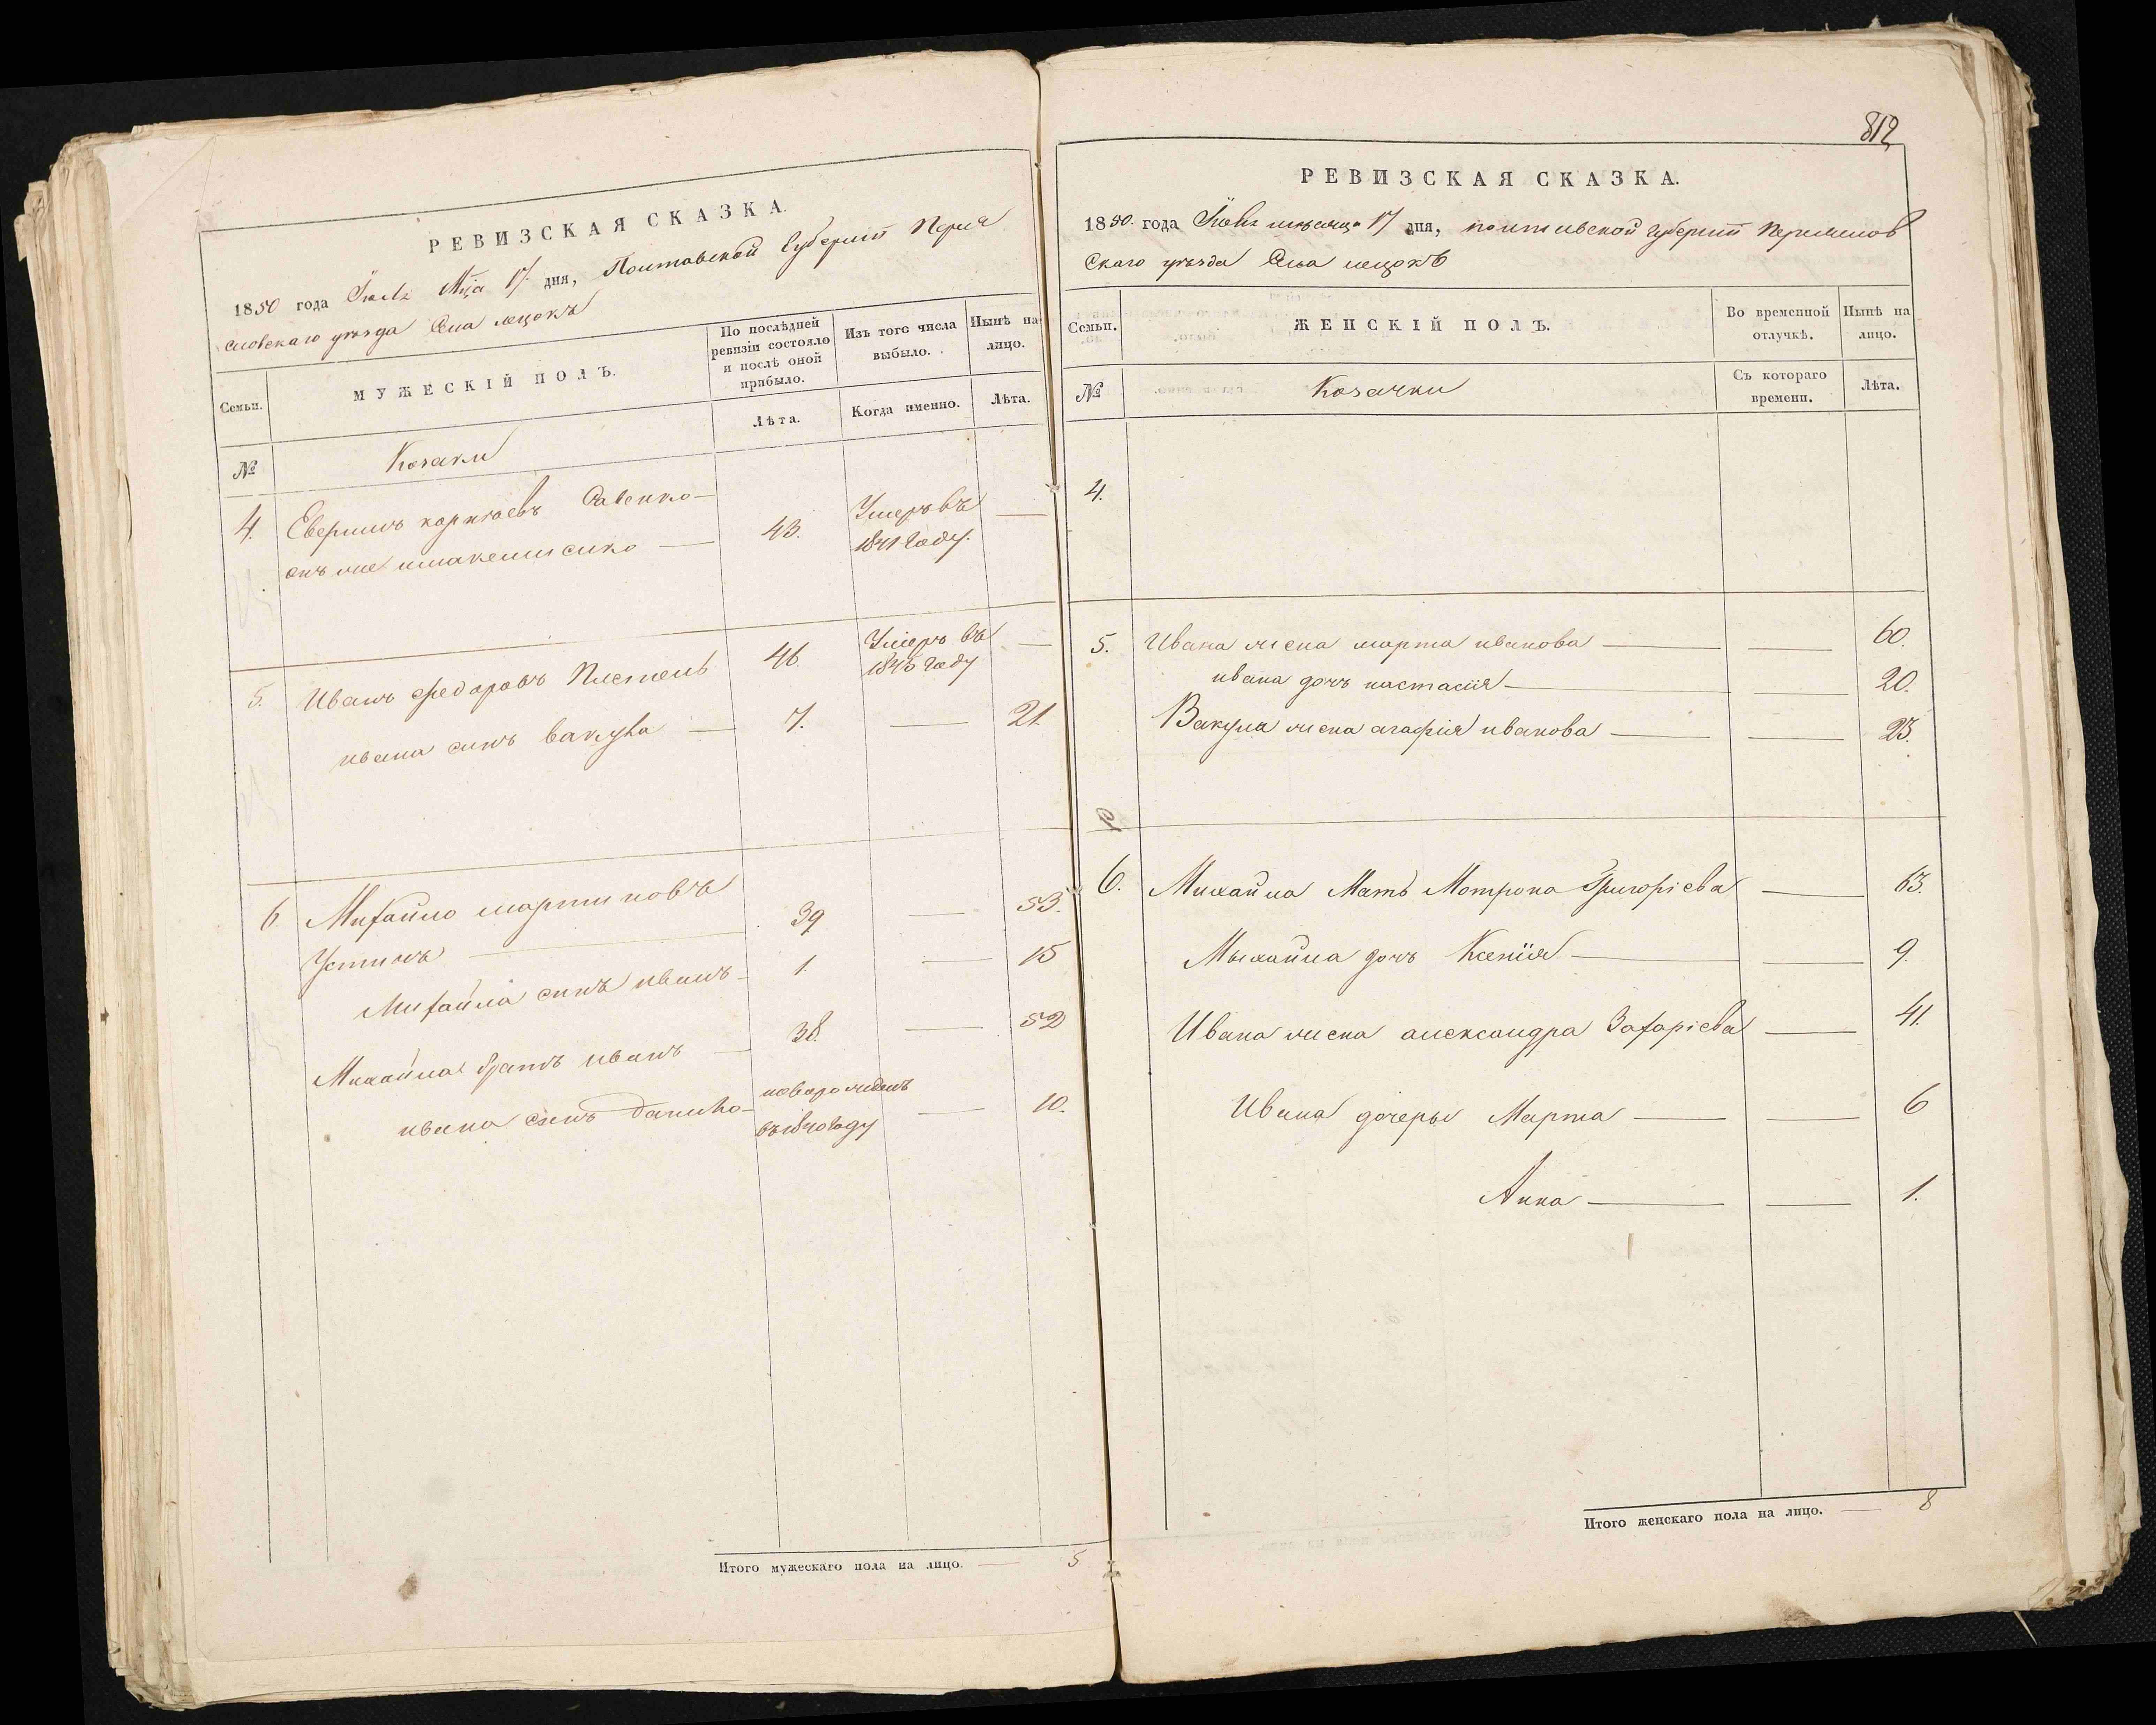 РЕВИЗСКАЯ СКАЗКА.
1850 года Июля Мца 17 дня, Полтавской Губерніи Перея
словскаго уезда Села лецокъ
Семьи.
МУЖЕСКІЙ ПОЛЪ.
По послѣдней ревизіи состояло и послѣ оной прибыло.
Изъ того числа выбыло.
Нынѣ на лицо.
№
Козаки
Лѣта.
Когда именно.
Лѣта.
4. Савенко 43. Умеръ въ —
онъ же 1841 году.
5. Иванъ федоровъ 46. Умеръ въ —
1845 году
ивана синъ вакула — 7. — 21.
6. Михайло мартиновъ
Устичъ — 39 — 53.
Михайла синъ иванъ — 1. — 15
Михайла братъ иванъ — 38. — 52
ивана синъ данило — новорожденъ — 10.
въ 1840 году
Итого мужескаго пола на лицо. — 5
812
РЕВИЗСКАЯ СКАЗКА.
1850. года Июля месяца 17 дня, полтавской губерніи Переяслов
Скаго уезда Села лецокъ
Семьи.
ЖЕНСКІЙ ПОЛЪ.
Во временной отлучкѣ.
Нынѣ на лицо.
№
Козачки
Съ котораго времени.
Лѣта.
4.
5. Ивана жена марта иванова — — 60.
ивана дочъ настасія — — 20.
Вакула жена агафія иванова — — 23.
6. Михайла Мать Мотрона Григоріева — 63.
Мыхайла дочъ Ксенія — — 9.
Ивана жена александра Захаріева — 41.
Ивана дочеры Марта — — 6
Анна — — 1.
Итого женскаго пола на лицо. — 8